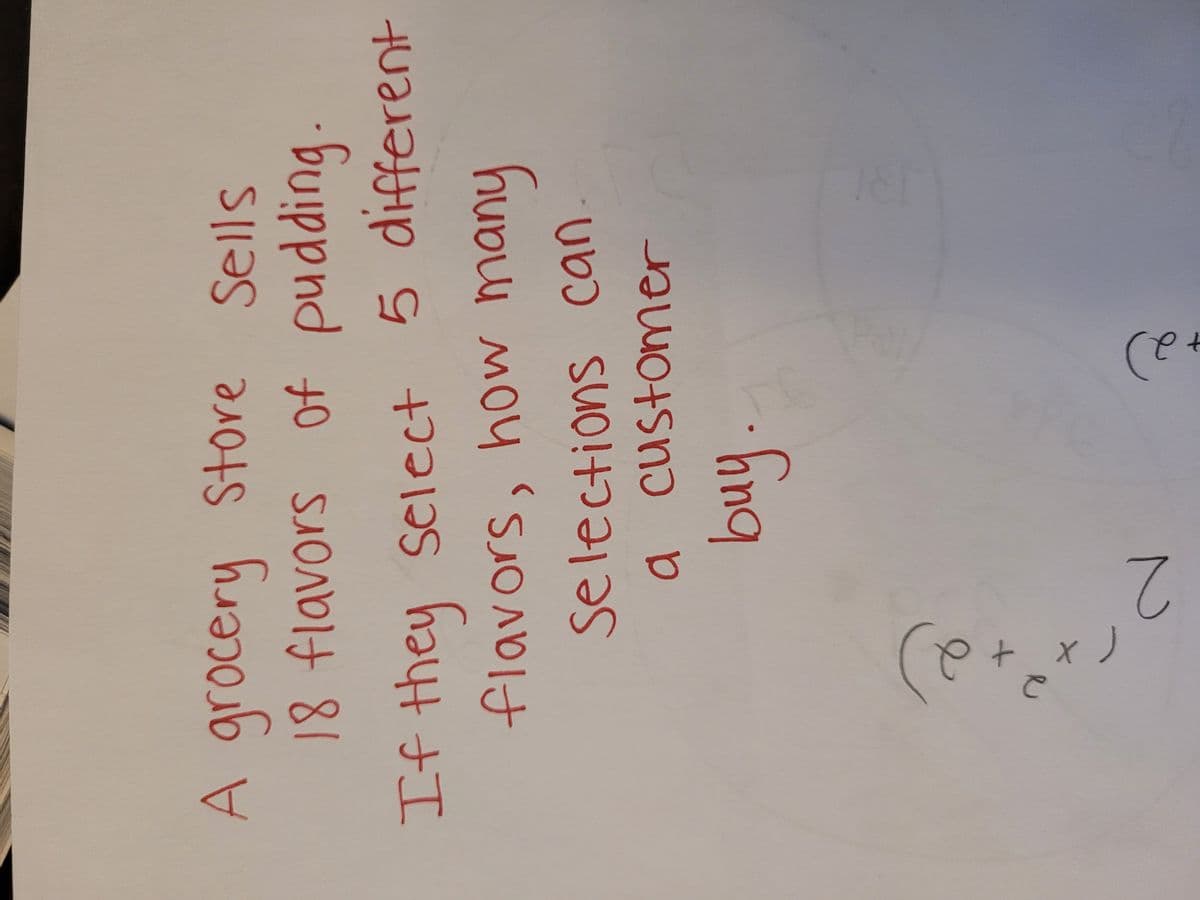 A grocery store sells
18 flavors of pudding.
If they select 5 different
flavors, how many
selections can
a customer
buy.
(x² + 2)
2
+ 2)